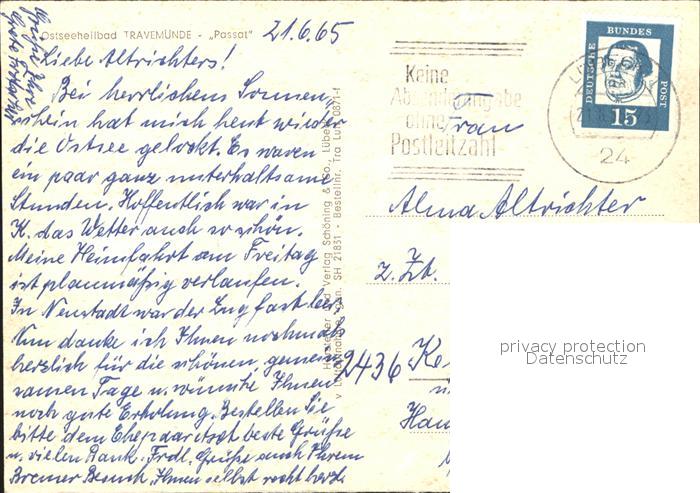 Ostseeheilbad TRAVEMÜNDE - „Passat"
21.6.65
Liebe Altrichters!
Bei herrlichem Sonnen-
schein hat mich heut wieder
die Ostsee gelockt. Es waren
ein paar ganz unterhaltsame
Stunden. Hoffentlich war in
K. das Wetter auch so schön.
Meine Heimfahrt am Freitag
ist planmäßig verlaufen.
In Neustadt war der Zug fast leer.
Nun danke ich Ihnen nochmals
herzlich für die schönen gemein-
samen Tage u. wünsche Ihnen
noch gute Erholung. Bestellen Sie
bitte dem Ehepaar beste Grüße
u. vielen Dank. Frdl. Grüße auch Ihrem
Bremer Besuch, Ihnen selbst recht herzl.
Verlag Schöning & Co., Lübeck
SH 21831 - Bestellnr. Tra
Keine
Absenderangabe
ohne
Postleitzahl
DEUTSCHE BUNDES POST
15
24
Frau
Alma Altrichter
z. Zt.
2436 Ke
Hau
privacy protection
Datenschutz